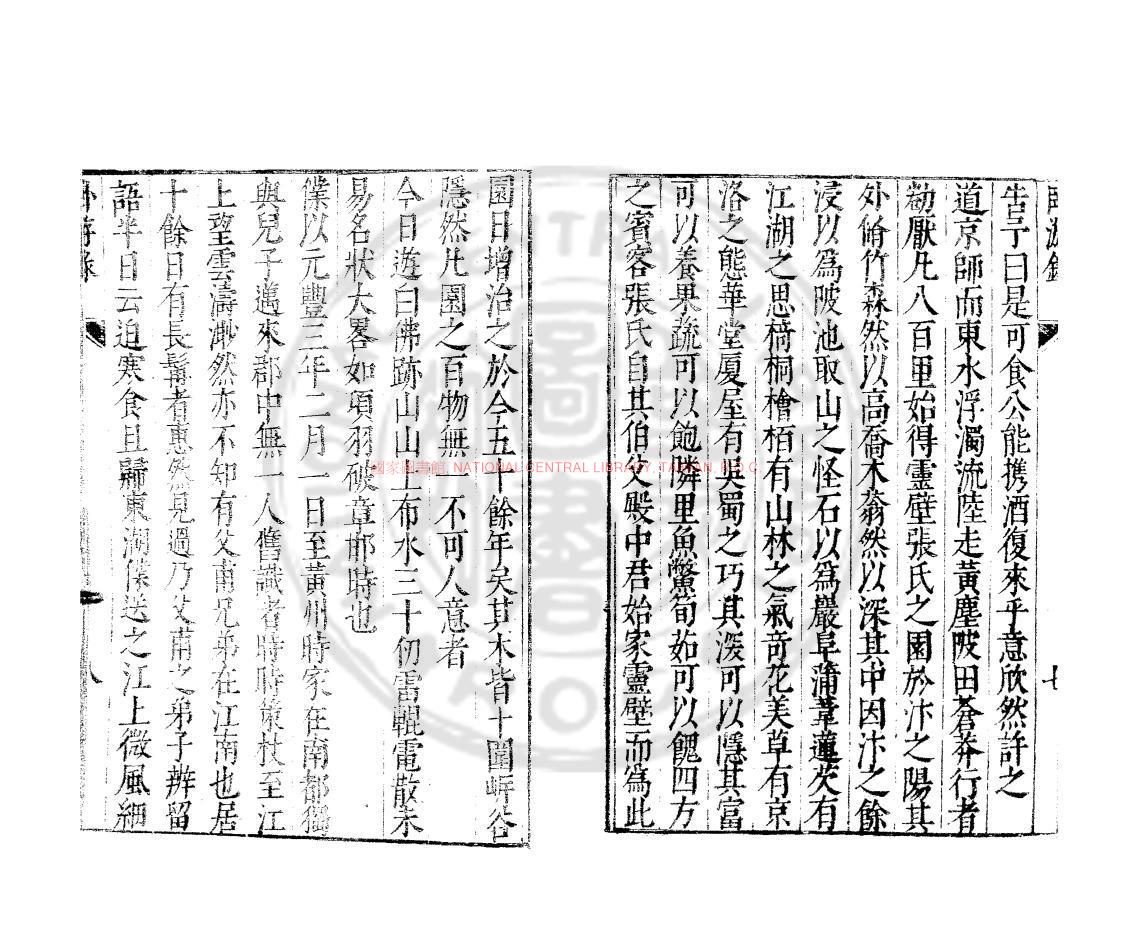 告予曰是可食公能携酒復來乎意欣然許之
道京師而東水浮濁流陸走黃塵陂田蒼莽行者
勌厭凡八百里始得靈壁張氏之園於汴之陽其
外脩竹森然以高喬木蓊然以深其中因汴之餘
浸以爲陂池取山之怪石以爲巖阜蒲葦蓮芡有
江湖之思椅桐檜栢有山林之氣奇花美草有京
洛之態華堂厦屋有吳蜀之巧其深可以隱其富
可以養果蔬可以飽隣里魚鱉筍茹可以餽四方
之賓客張氏自其伯父殿中君始家靈壁而爲此
園日增治之於今五十餘年矣其木皆十圍岍谷
隱然凡園之百物無一不可人意者
今日遊白佛跡山山上布水三十仞雷輥電散未
易名狀大畧如項羽破章邯時也
僕以元豐三年二月一日至黃州時家在南都獨
與兒子邁來郡中無一人舊識者時時策杖至江
上望雲濤渺然亦不知有文甫兄弟在江南也居
十餘日有長髯者惠然見過乃文甫之弟子辨留
語半日云迫寒食且歸東湖僕送之江上微風細
卧游錄
八
國家圖書館, NATIONAL CENTRAL LIBRARY, TAIWAN, R.O.C.